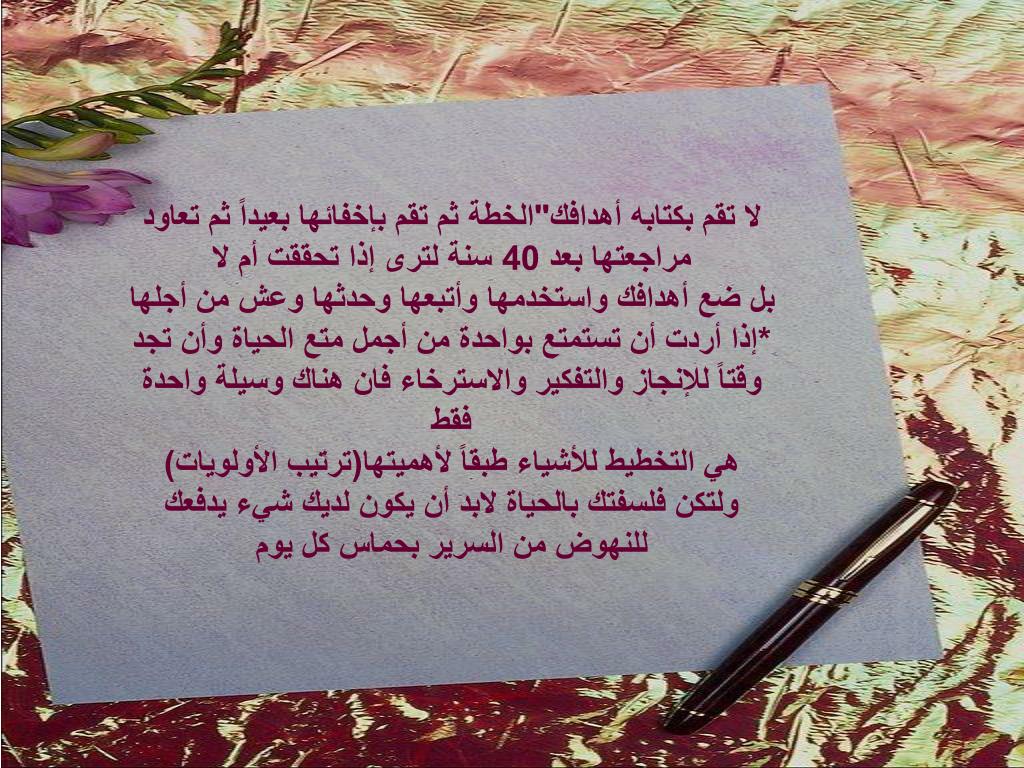 لا تقم بكتابه أهدافك"الخطة ثم تقم بإخفائها بعيداً ثم تعاود
مراجعتها بعد 40 سنة لترى إذا تحققت أم لا
بل ضع أهدافك واستخدمها وأتبعها وحدثها وعش من أجلها
*إذا أردت أن تستمتع بواحدة من أجمل متع الحياة وأن تجد
وقتاً للإنجاز والتفكير والاسترخاء فان هناك وسيلة واحدة
فقط
هي التخطيط للأشياء طبقاً لأهميتها(ترتيب الأولويات)
ولتكن فلسفتك بالحياة لابد أن يكون لديك شيء يدفعك
للنهوض من السرير بحماس كل يوم